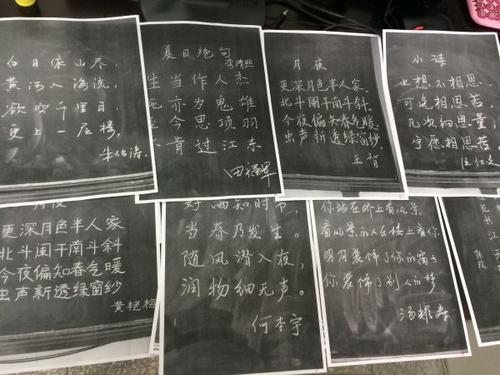 白日依山尽，
黄河入海流，
欲穷千里目，
更上一层楼。
夏日绝句
李清照
生当作人杰
死亦为鬼雄
至今思项羽
不肯过江东
月夜
更深月色半人家，
北斗阑干南斗斜，
今夜偏知春气暖，
虫声新透绿窗纱。
王智
小泽
也想不相思，
可免相思苦，
几次细思量，
宁愿相思苦。
月夜
更深月色半人家
北斗阑干南斗斜
今夜偏知春气暖
虫声新透绿窗纱
好雨知时节，
当春乃发生。
随风潜入夜，
润物细无声。
何本宇
你站在桥上看风景
看风景的人在楼上看你
明月装饰了你的窗子
你装饰了别人的梦
长江